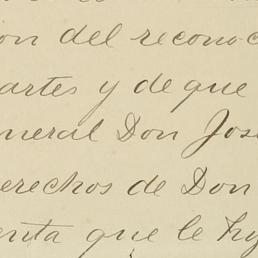 ion del reconoc
artes y de que
neral Don José
derechos de Don
enta que le hy